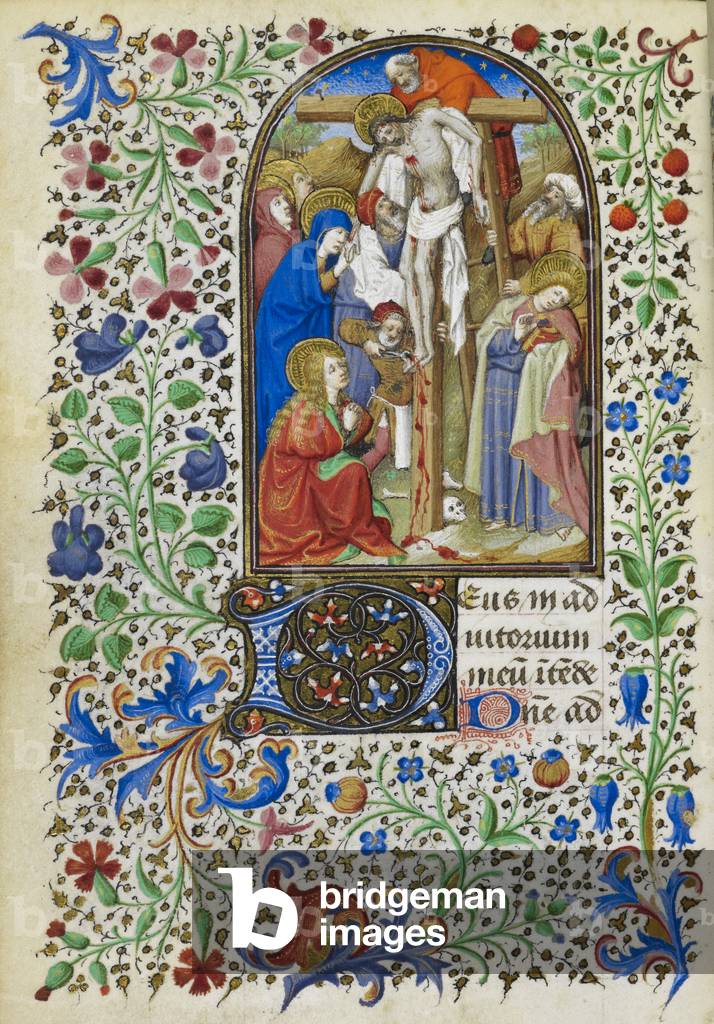 Deus in ad
iutorium
meū ītēde
Dn̄e ad
b bridgeman
images